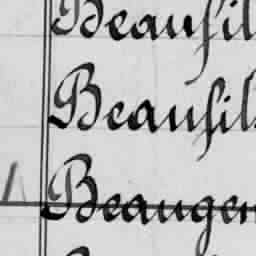 Beaufil
Beaufils
Beaugen